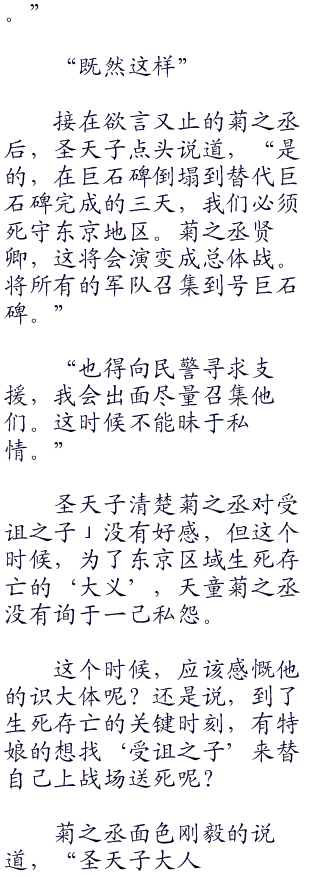 。”
“既然这样”
接在欲言又止的菊之丞
后，圣天子点头说道，“是
的，在巨石碑倒塌到替代巨
石碑完成的三天，我们必须
死守东京地区。菊之丞贤
卿，这将会演变成总体战。
将所有的军队召集到号巨石
碑。”
“也得向民警寻求支
援，我会出面尽量召集他
们。这时候不能昧于私
情。”
圣天子清楚菊之丞对受
诅之子」没有好感，但这个
时候，为了东京区域生死存
亡的‘大义’，天童菊之丞
没有询于一己私怨。
这个时候，应该感慨他
的识大体呢？还是说，到了
生死存亡的关键时刻，有特
娘的想找‘受诅之子’来替
自己上战场送死呢？
菊之丞面色刚毅的说
道，“圣天子大人